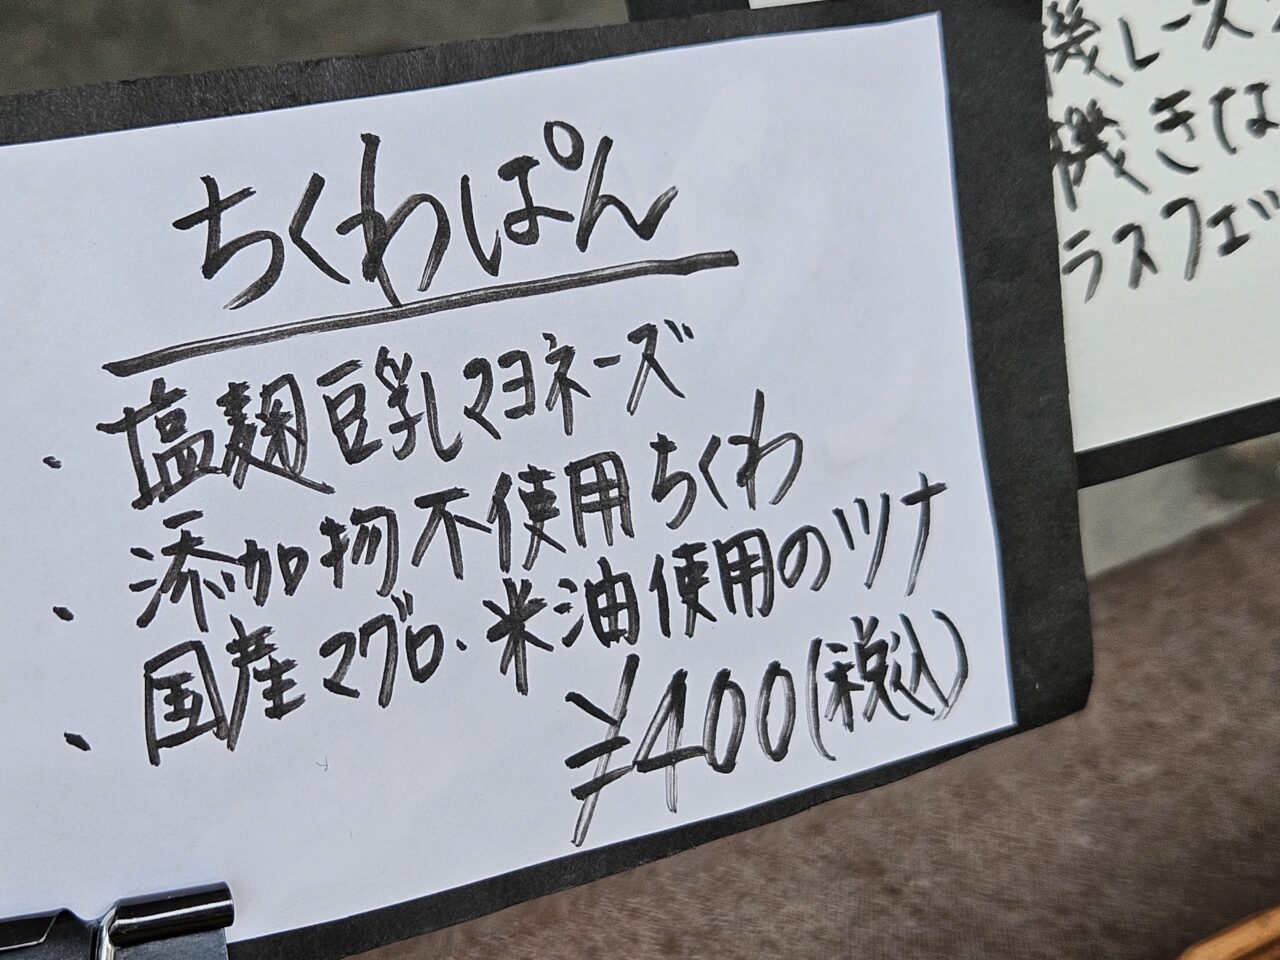 ちくわぱん
・塩麹豆乳マヨネーズ
・添加物不使用ちくわ
・国産マグロ・米油使用のツナ
¥400(税込)
機レーズ
機きな
ラスフェ